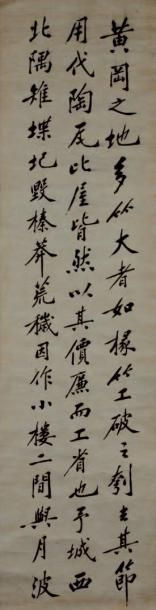 黄冈之地多竹大者如椽竹工破之刳去其節
用代陶瓦比屋皆然以其價廉而工省也予城西
北隅雉堞圮毀榛莽荒穢因作小樓二間與月波